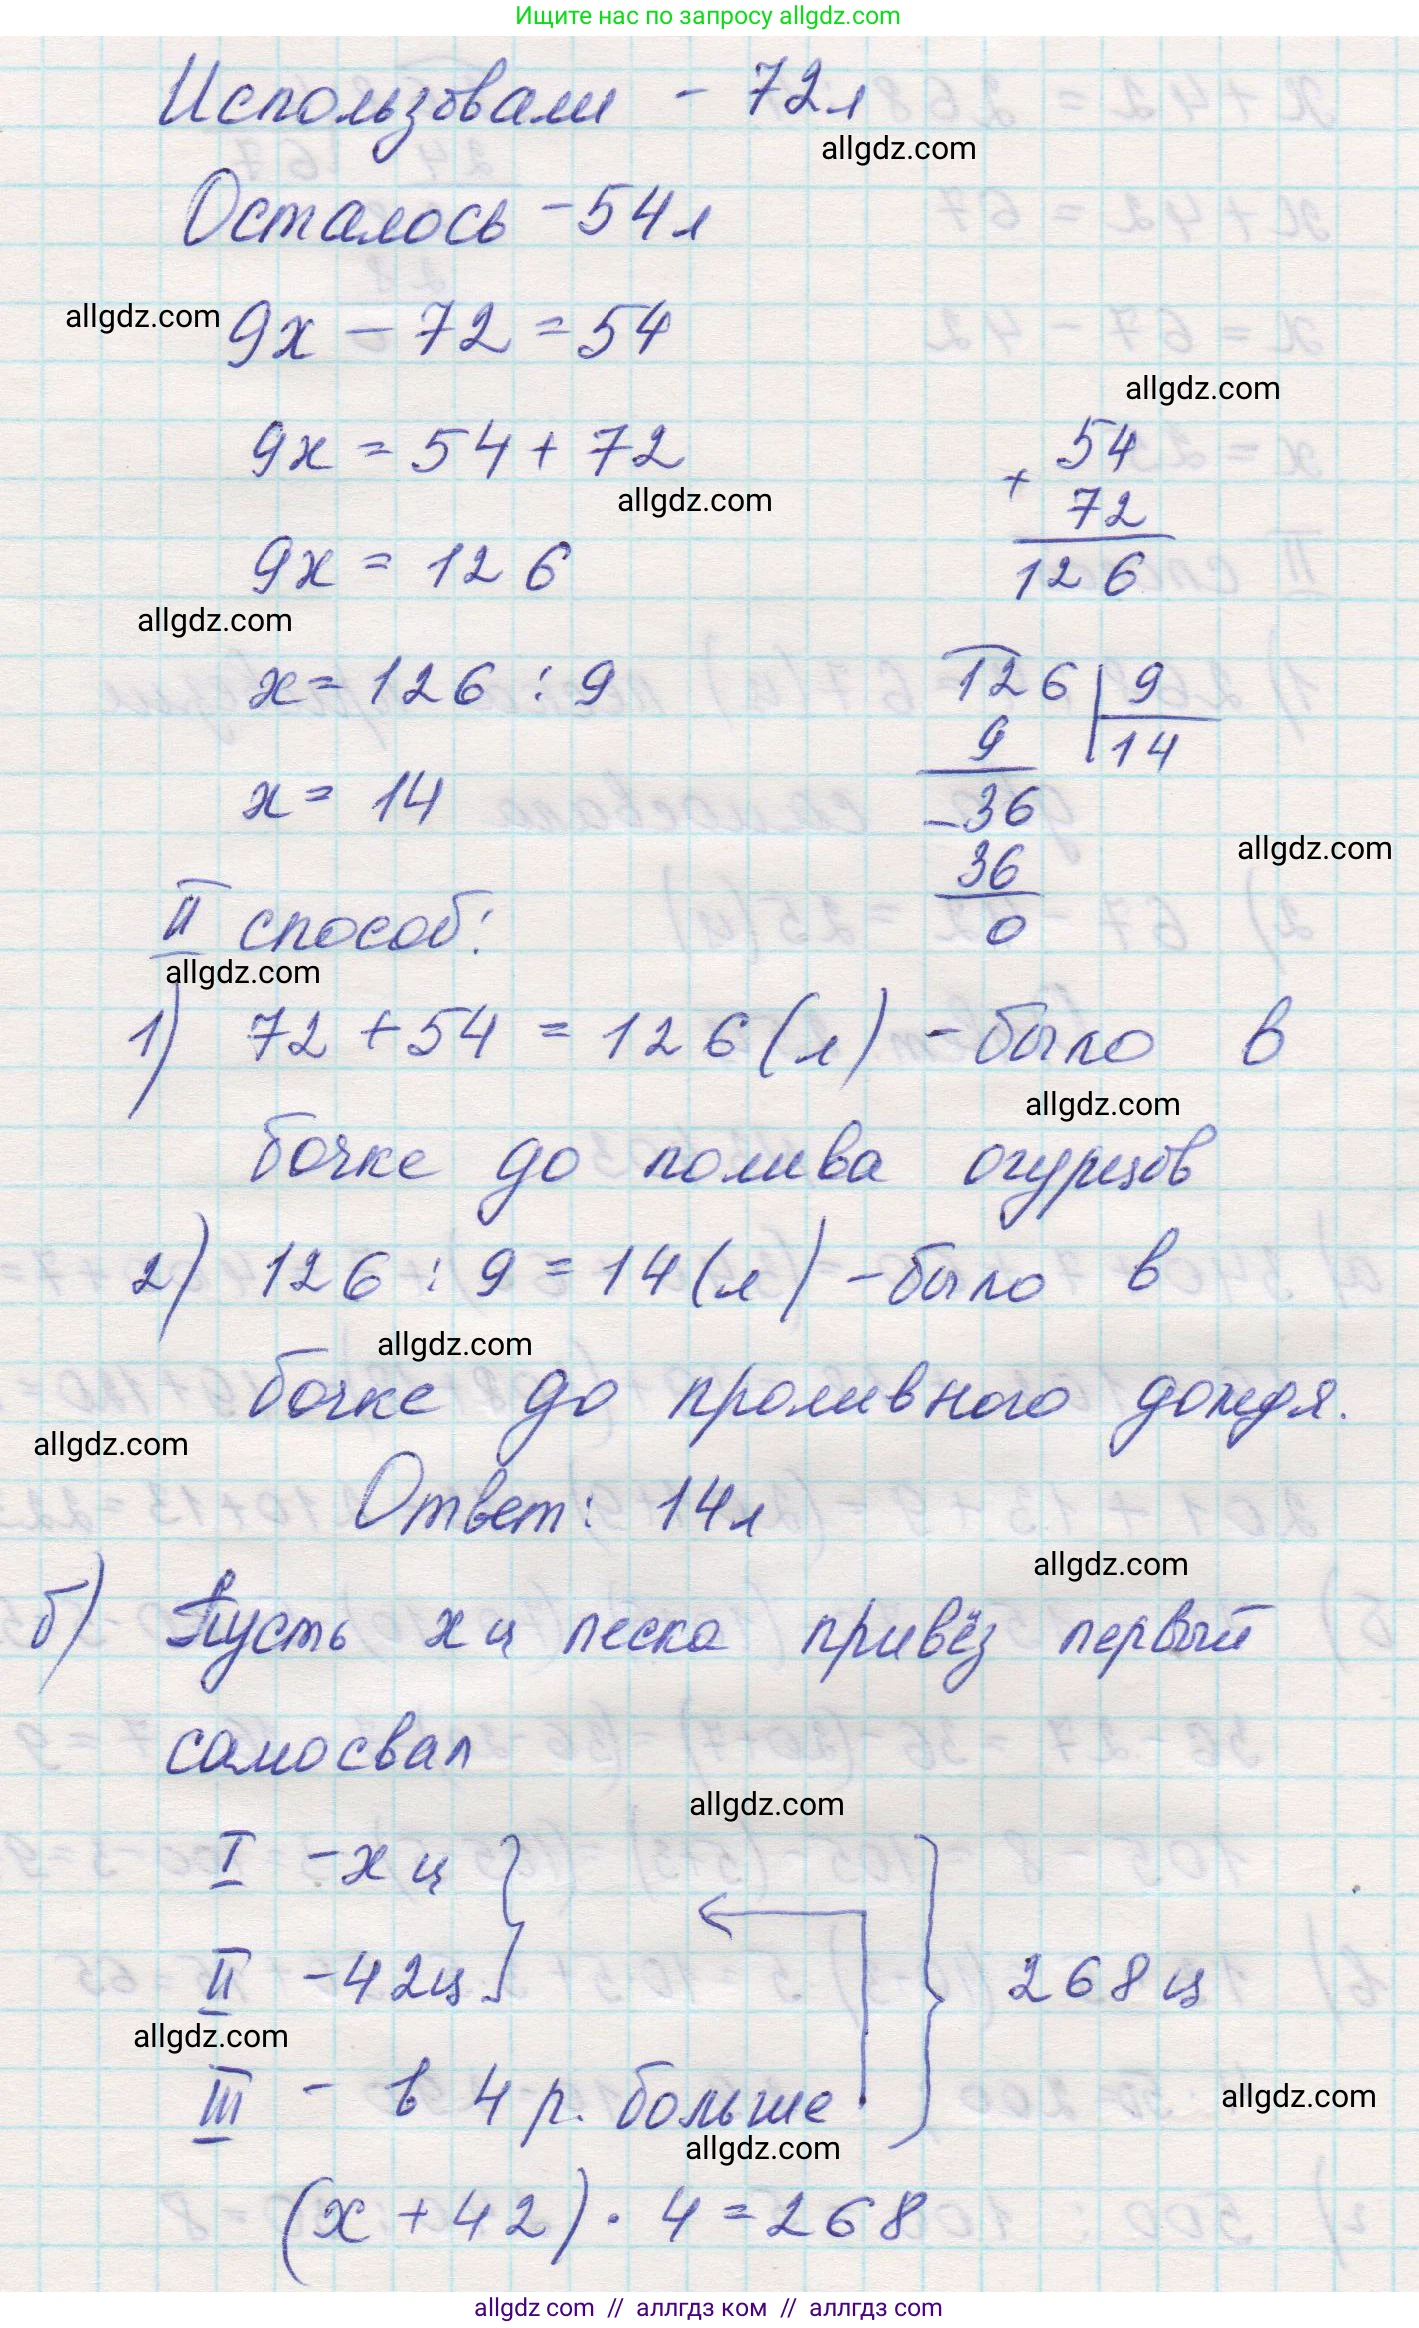 Ищите нас по запросу allgdz.com
Использовали - 72л
allgdz.com
Осталось - 54л
allgdz.com
9х - 72 = 54
allgdz.com
9х = 54 + 72
54
+
72
126
allgdz.com
9х = 126
allgdz.com
х = 126 : 9
126 9
9 14
х = 14
- 36
36
0
allgdz.com
II способ:
allgdz.com
1) 72 + 54 = 126 (л) - было в
allgdz.com
бочке до полива огурцов
2) 126 : 9 = 14 (л) - было в
allgdz.com
бочке до проливного дождя.
allgdz.com
Ответ: 14л
allgdz.com
б) Пусть х ц песка привёз первый
самосвал
allgdz.com
I - х ц
II - 42ц
268 ц
allgdz.com
III - в 4 р. больше
allgdz.com
allgdz.com
(х + 42) · 4 = 268
allgdz com // аллгдз ком // аллгдз com